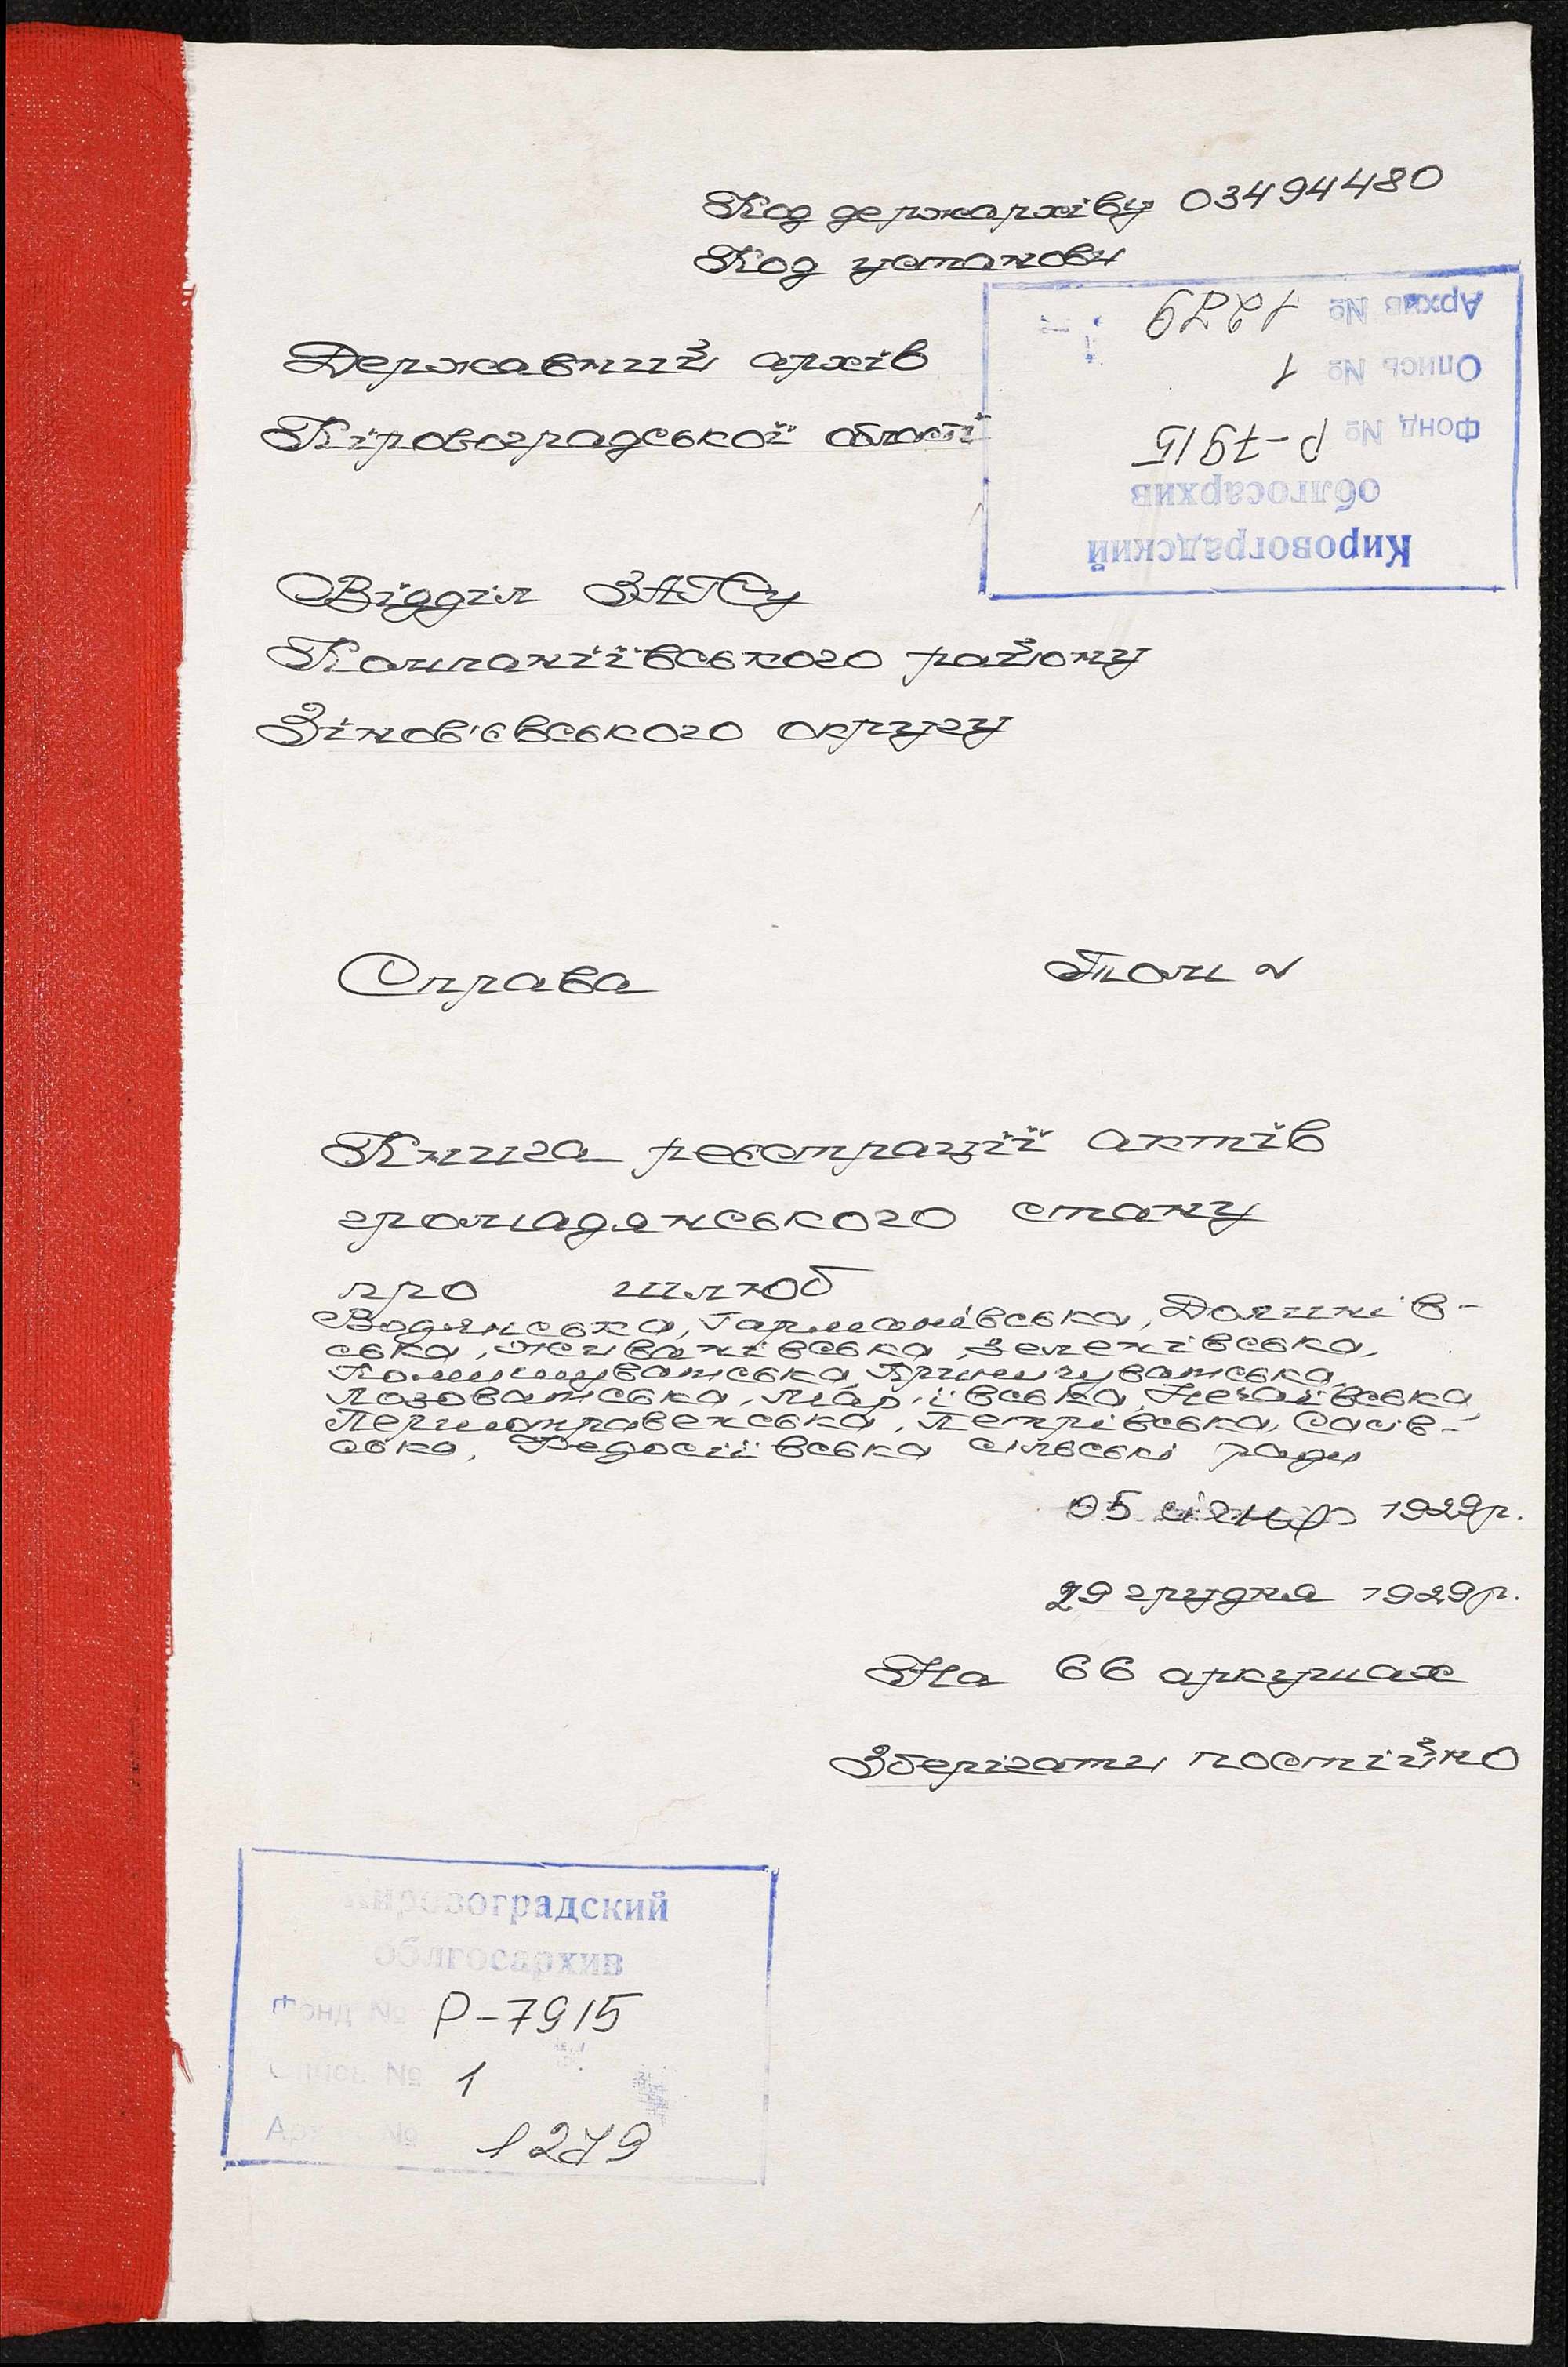 Код держархіву 03494480
Код установи
Архив № 1279
Опись № 1
Фонд № Р-7915
облгосархив
Кировоградский
Державний архів
Кіровоградської області
Відділ ЗАГСу
Компаніївського району
Зінов'євського округу
Справа Том №
Книга реєстрації актів
громадянського стану
про шлюб
Водянська, Гармашівська, Долинів-
ська, Живанівська, Зеленівська,
Лозоватська, Мар'ївська, Нечаївська,
Першотравенська, Петрівська, Сасів-
ська, Федосіївська сільські ради
05 січня 1929р.
29 грудня 1929р.
На 66 аркушах
Зберігати постійно
Кировоградский
облгосархив
Фонд № Р-7915
Опись № 1
Архив № 1279